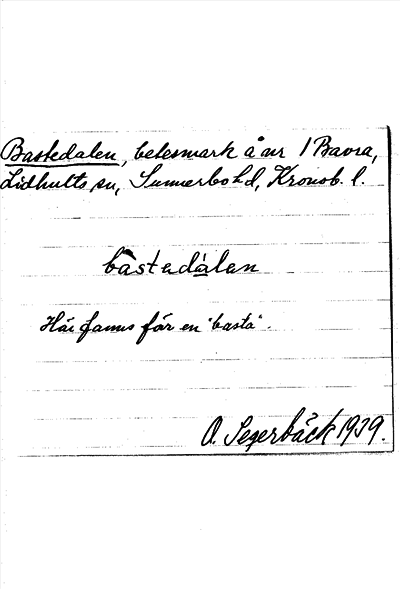 Bastedalen, betesmark å nr 1 Bavra,
Lidhults sn, Sunnerbo hd, Kronob. l.
bàstedàlen
Här fannsför en "basta".
O. Segerbäck 1939.